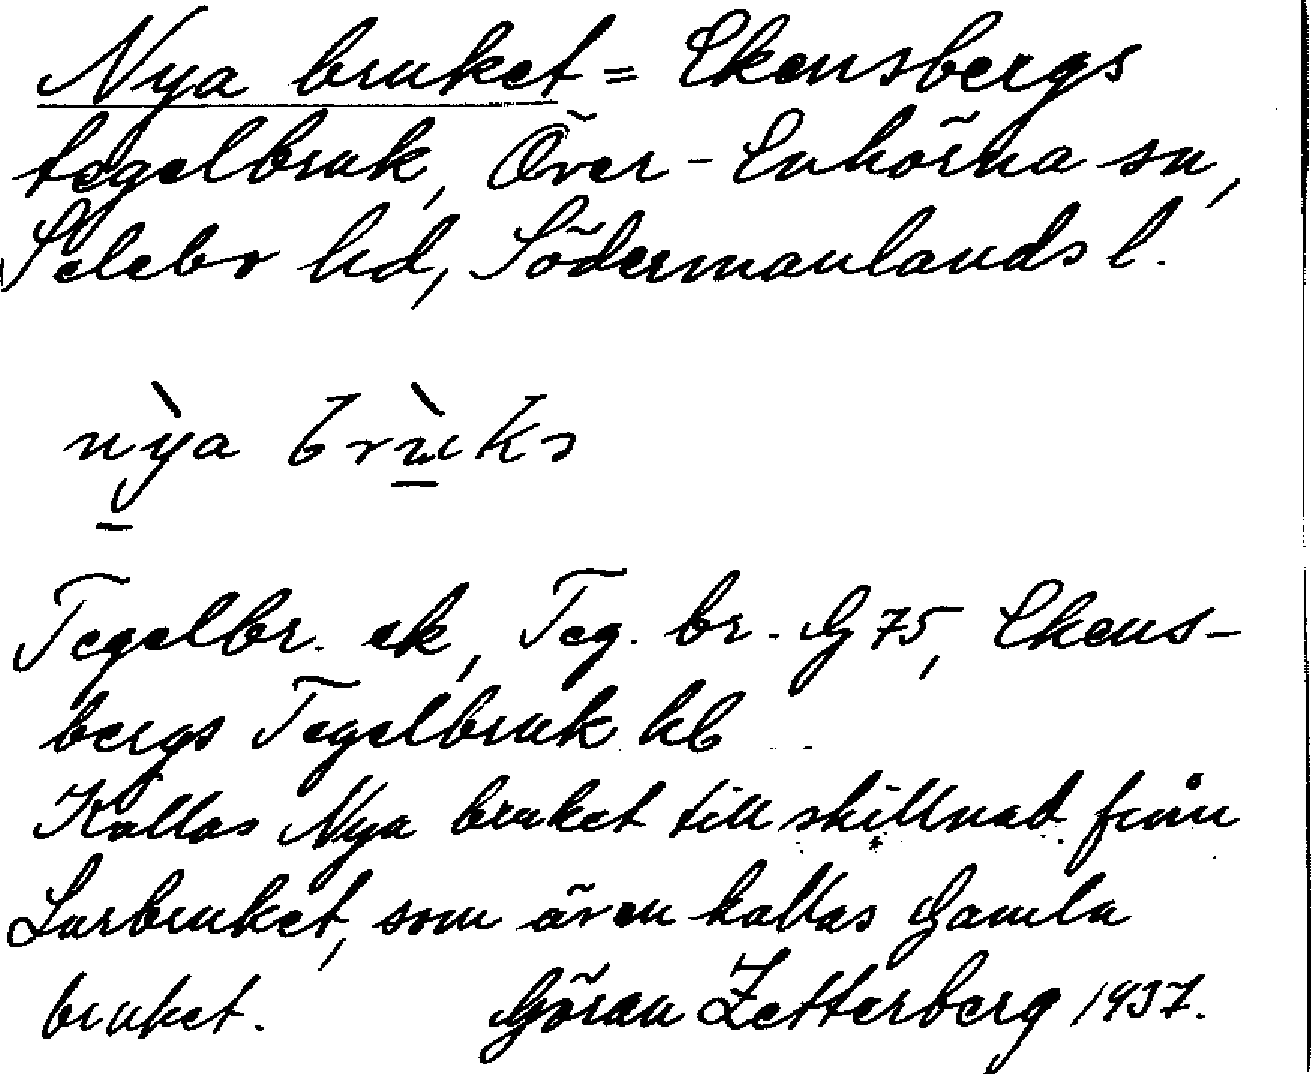 Nya bruket = Ekensbergs
tegelbruk, Över-Enhörna sn,
Selebo hd, Södermanlands l.
nỳa brùkə
Tegelbr. ek, Teg. br. G 75, Ekens-
bergs Tegelbruk kb
Kallas Nya bruket till skillnad från
Larbruket, som även kallas Gamla
bruket. Göran Zetterberg 1937.